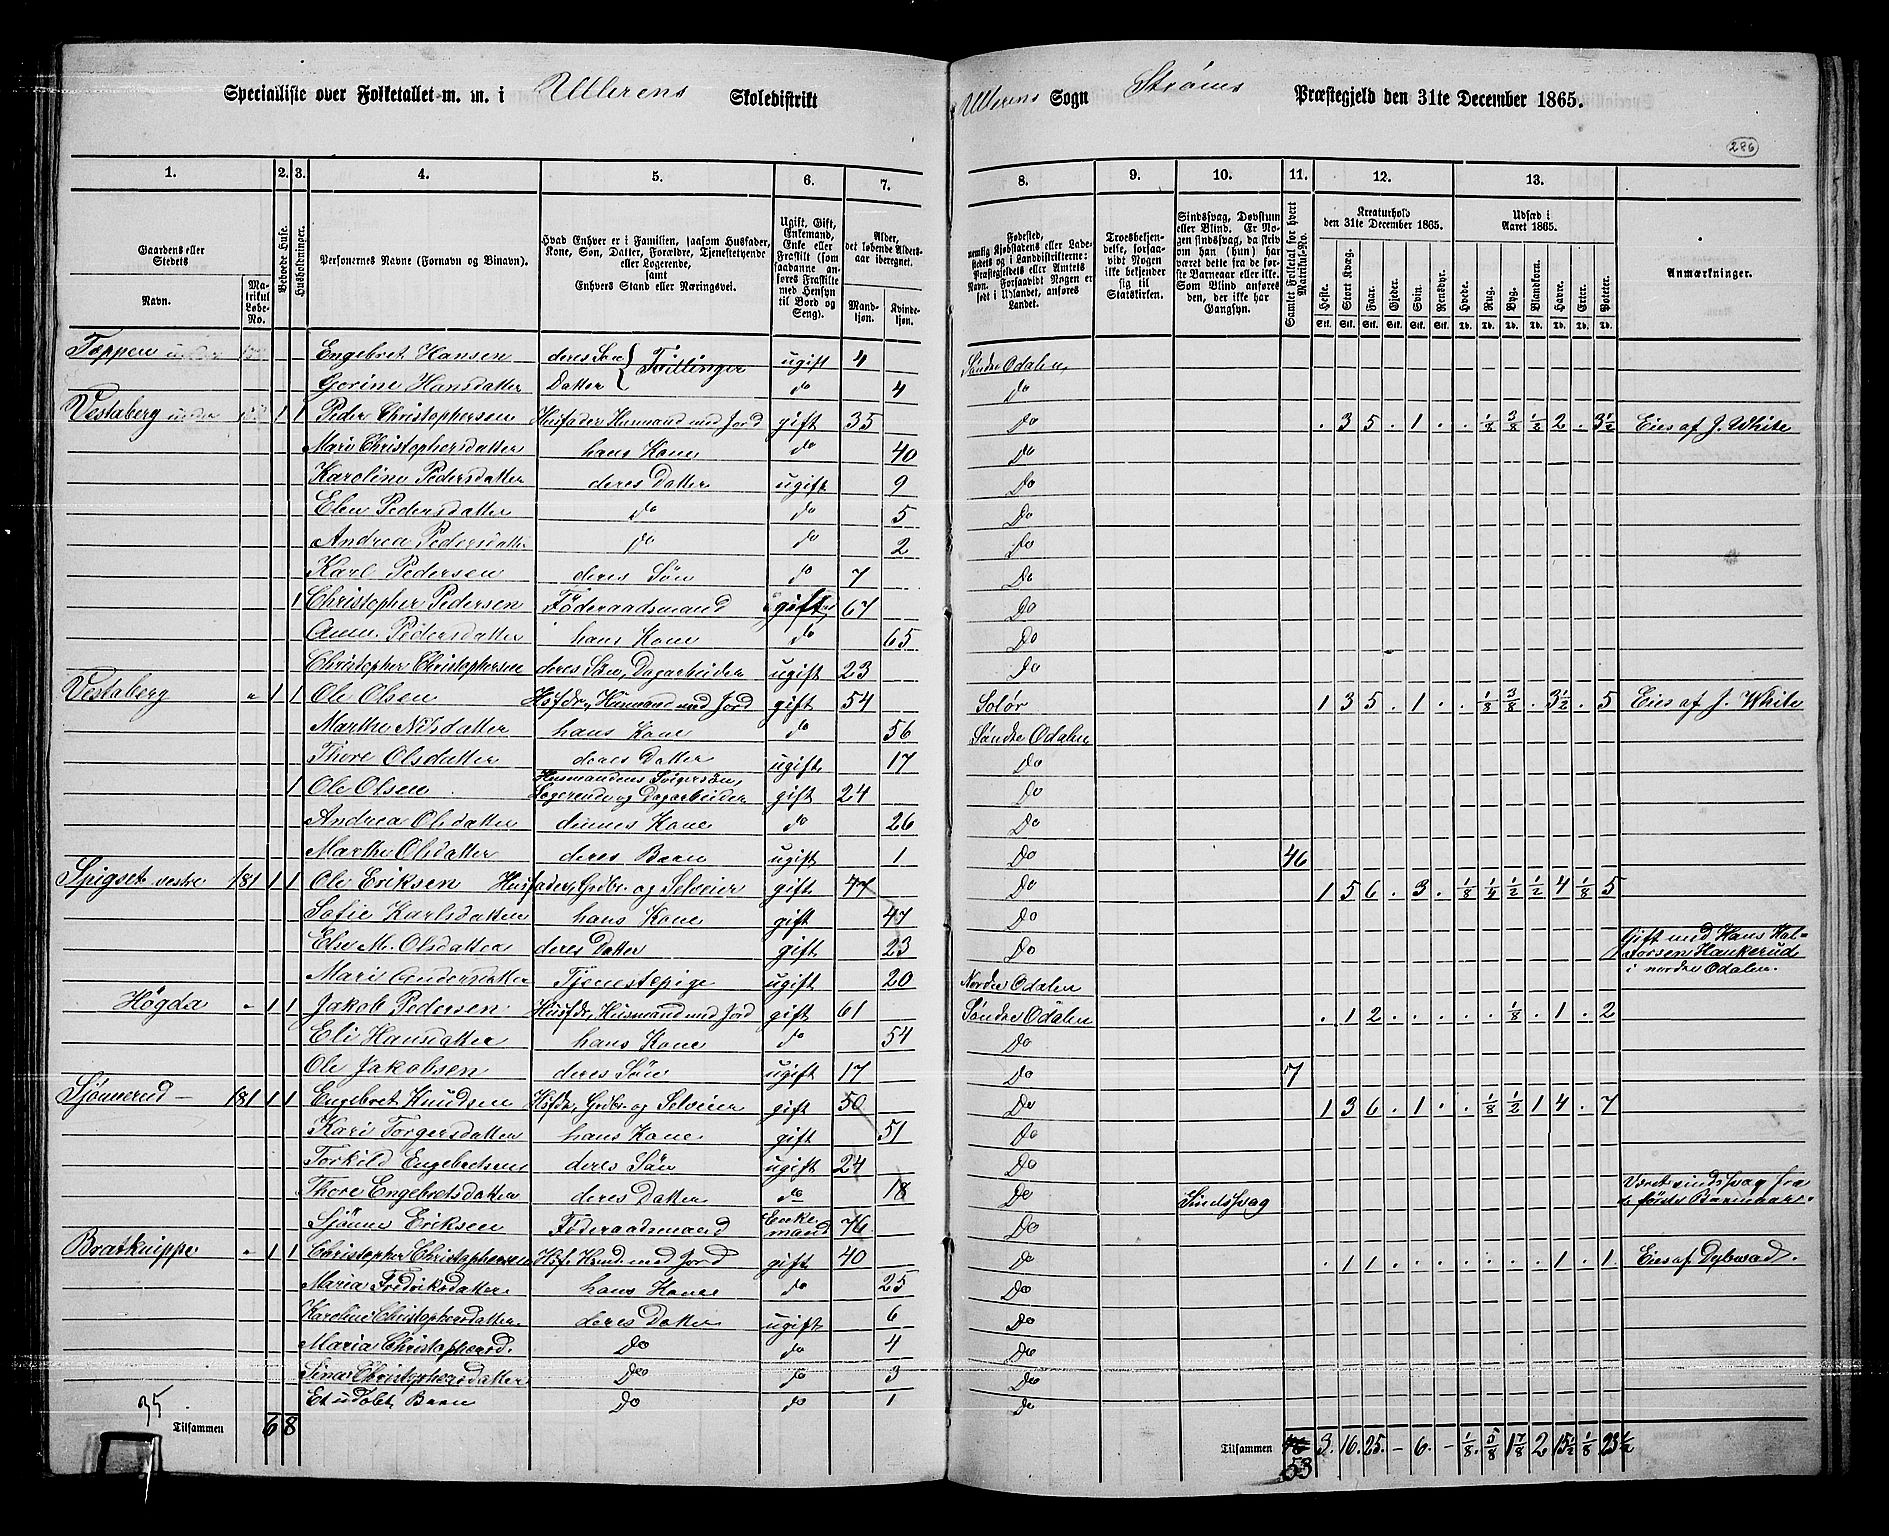 Specialliste over Folketallet m. m. i Ullerens Skoledistrikt Ullerens Sogn Strøms Præstegjeld den 31te December 1865.
286
1. 2. 3. 4. 5. 6. 7. 8. 9. 10. 11. 12. 13.
Gaardens eller Stedets Navn. Matrikul Løbe-No.
Beboede Huse.
Husholdninger.
Personernes Navne (Fornavn og Binavn).
Hvad Enhver er i Familien, saasom Husfader, Kone, Søn, Datter, Forældre, Tjenestetyende eller Logerende, samt Enhvers Stand eller Næringsvei.
Ugift, Gift, Enkemand, Enke eller Fraskilt (som saadanne anføres Fraskilte med Hensyn til Bord og Seng).
Alder, det løbende Aldersaar iberegnet. Mandkjøn. Kvindekjøn.
Fødested, nemlig Kjøbstadens eller Ladestedets og i Landdistrikterne: Præstegjeldets eller Amtets Navn. Forsaavidt Nogen er født i Udlandet, anføres Landet.
Troesbekjendelse, forsaavidt Nogen ikke bekjender sig til Statskirken.
Sindssvag, Døvstum eller Blind. Er Nogen sindssvag, da skrives om han (hun) har været dette fra de første Barneaar eller ikke. Som Blind anføres den, der ikke har Gangsyn.
Samlet Folketal for hvert Matrikul-No.
Kreaturhold den 31te December 1865. Heste. Stort Kvæg. Faar. Gjeder. Svin. Rensdyr.
Udsæd i Aaret 1865. Hvede. Rug. Byg. Blandkorn. Havre. Erter. Poteter.
Stk. Stk. Stk. Stk. Stk. Stk. Td. Td. Td. Td. Td. Td. Td.
Anmærkninger.
Tæppen under Engebret Hansen deres Søn } Tvillinger ugift 4 Søndre Odalen,
Gorine Hansdatter Datter do 4 Do
Vestaberg under 1 1 Peder Christophersen Husfader Husmand med Jord gift 35 Do . 3 5 . 1 . . 1/8 3/8 1/2 2 . 3 1/2 Eies af J. White
Mari Christophersdatter hans Kone do 40 Do
Karoline Pedersdatter deres Datter ugift 9 Do
Elen Pedersdatter do do 5 Do
Andrea Pedersdatter do do 2 Do
Karl Pedersen deres Søn do 7 Do
1 Christopher Pedersen Føderaadsmand gift 67 Do
Anne Pedersdatter hans Kone do 65 Do
Christopher Christophersen deres Søn, Dagarbeider ugift 23 Do
Vestaberg " 1 1 Ole Olsen Hsfdr, Husmand med Jord gift 54 Solør 1 3 5 . 1 . . 1/8 3/8 . 3 1/2 . 5 Eies af J. White
Marthe Nilsdatter hans Kone do 56 Søndre Odalen
Thore Olsdatter deres Datter ugift 17 Do
1 Ole Olsen Husmandens Svigersøn, Logerende og Dagarbeider gift 24 Do
Andrea Olsdatter dennes Kone do 26 Do
Marthe Olsdatter deres Barn ugift 1 Do 46
Spigset vestre 181 1 1 Ole Eriksen Husfader, Grdbr. og Selveier gift 47 Do 1 5 6 . 3 . 1/8 1/4 1/2 1/2 4 1/8 5
Sofie Karlsdatter hans Kone gift 47 Do
Else M. Olsdatter deres Datter gift 23 Do Gift med Hans Halvorsen Haukerud i nordre Odalen.
Mari Andersdatter Tjenestepige ugift 20 Nordre Odalen
Høgda " 1 1 Jakob Pedersen Husfdr, Husmand med Jord gift 61 Søndre Odalen . 1 2 . . . . . 1/8 . 1 . 2
Eli Hansdatter hans Kone do 54 Do
Ole Jakobsen deres Søn ugift 17 Do 7
Sjønnerud - 181 1 1 Engebret Knudsen Hsfdr, Grdbr. og Selveier gift 50 Do 1 3 6 . 1 . . 1/8 1/2 1 4 . 7
Kari Torgersdatter hans Kone gift 51 Do
Torkild Engebretsen deres Søn ugift 24 Do
Thore Engebretsdatter deres Datter do 18 Do Sindssvag Været sindssvag fra de første Barneaar.
Sjønne Eriksen Føderaadsmand Enkemand 76 Do
Bratknippe " 1 1 Christopher Christophersen Hsf. Hsmd. med Jord gift 40 Do . 1 1 . . . . . . . 1 . 1. Eies af Dybwad.
Maria Fredriksdatter hans Kone do 25 Do
Karoline Christophersdatter deres Datter ugift 6 Do
Maria Christophersd. Do do 4 Do
Sina Christophersdatter Do do 3 Do
Et udøbt Barn Do do 1 Do
35
Tilsammen 6 8
Tilsammen 46 3. 16. 25. - 6. - 1/8. 5/8 1 7/8 2 15 1/2 1/8 23 1/2
53